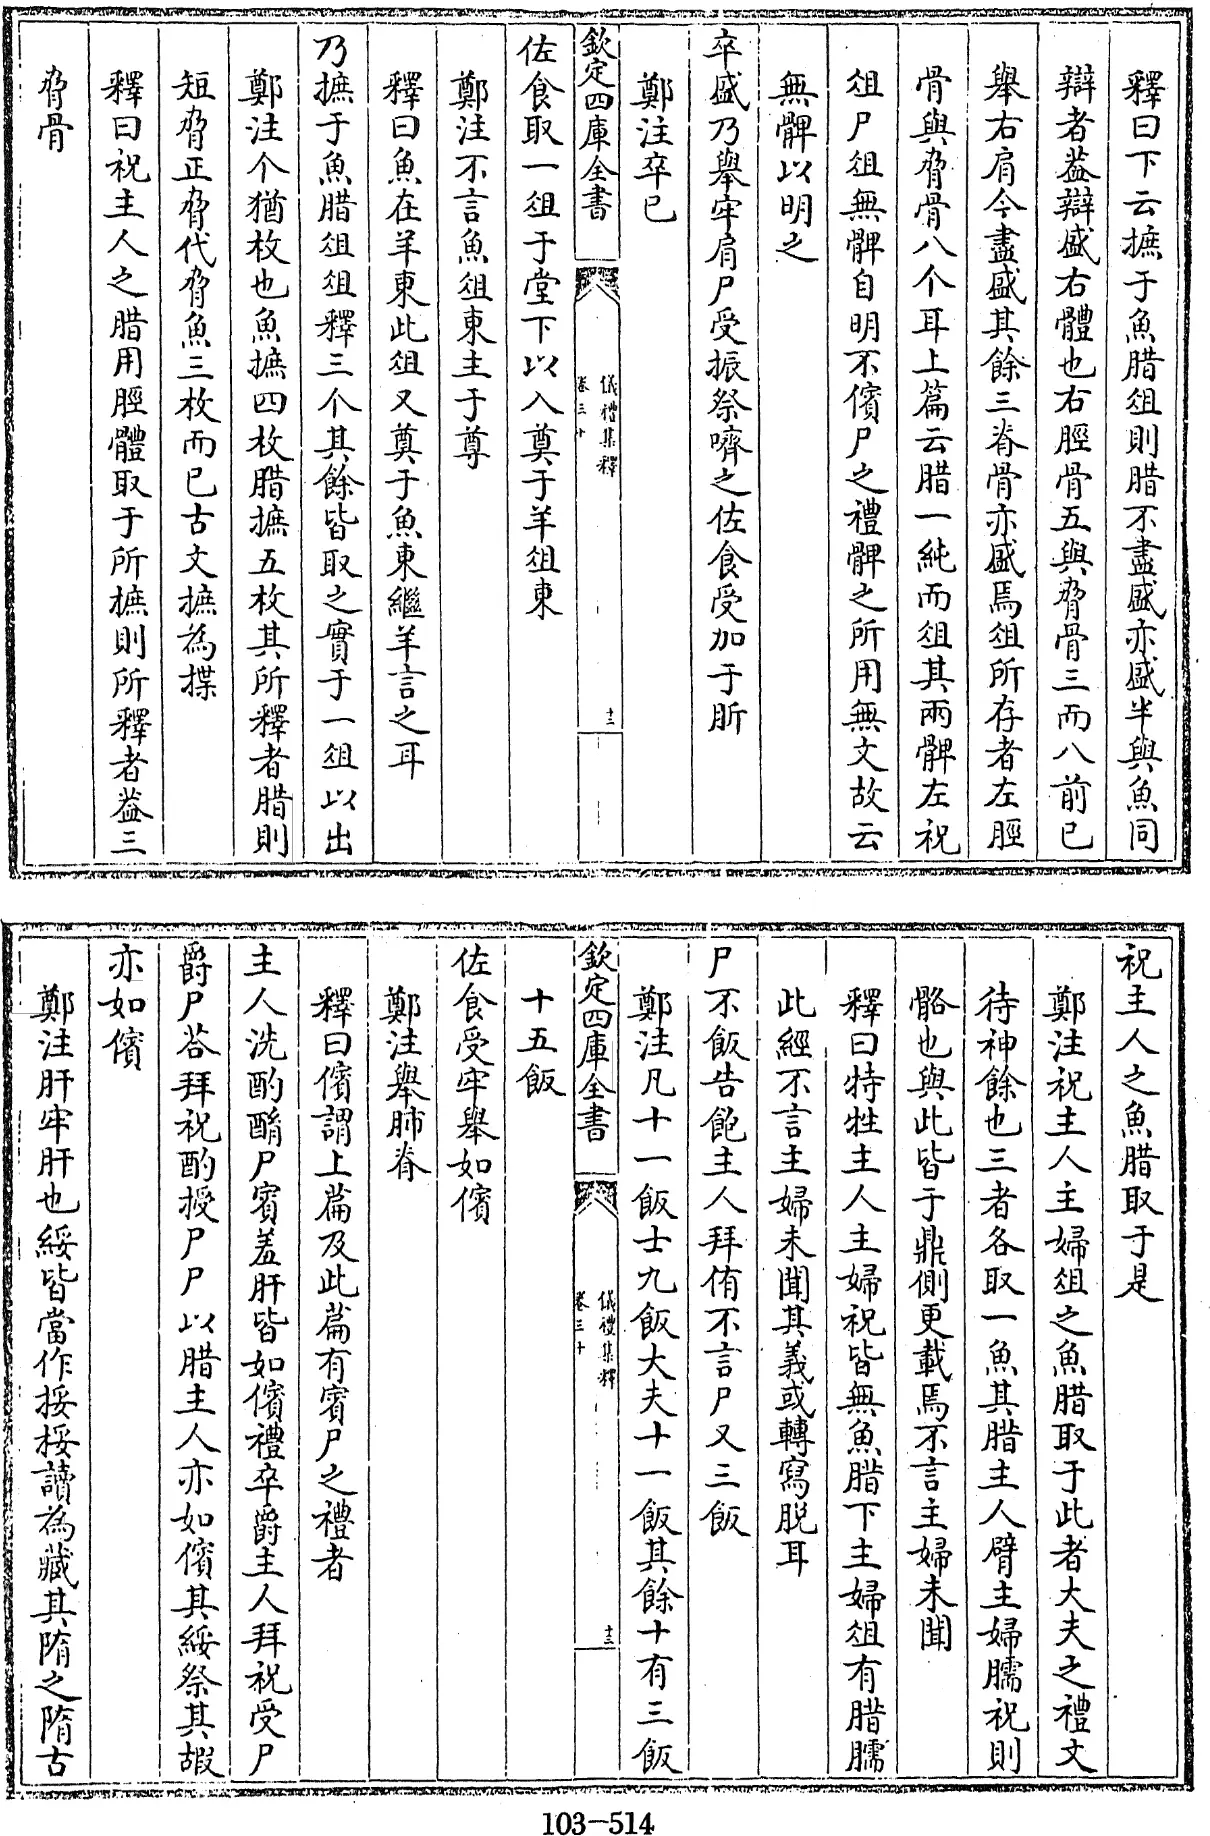 釋曰下云摭于魚腊俎則腊不盡盛亦盛半與魚同
辯者葢辯盛右體也右脛骨五與脅骨三而八前已
舉右肩今盡盛其餘三脊骨亦盛焉俎所存者左脛
骨與脅骨八个耳上篇云腊一純而俎其兩髀左祝
俎尸俎無髀自明不儐尸之禮髀之所用無文故云
無髀以明之
卒盛乃舉牢肩尸受振祭嚌之佐食受加于肵
鄭注卒已
欽定四庫全書
儀禮集釋
卷三十
十二
佐食取一俎于堂下以入奠于羊俎東
鄭注不言魚俎東主于尊
釋曰魚在羊東此俎又奠于魚東繼羊言之耳
乃摭于魚腊俎俎釋三个其餘皆取之實于一俎以出
鄭注个猶枚也魚摭四枚腊摭五枚其所釋者腊則
短脅正脅代脅魚三枚而已古文摭為揲
釋曰祝主人之腊用脛體取于所摭則所釋者葢三
脅骨
祝主人之魚腊取于是
鄭注祝主人主婦俎之魚腊取于此者大夫之禮文
待神餘也三者各取一魚其腊主人臂主婦臑祝則
骼也與此皆于鼎側更載焉不言主婦未聞
釋曰特牲主人主婦祝皆無魚腊下主婦俎有腊臑
此經不言主婦未聞其義或轉寫脫耳
尸不飯告飽主人拜侑不言尸又三飯
鄭注凡十一飯士九飯大夫十一飯其餘十有三飯
欽定四庫全書
儀禮集釋
卷三十
十三
十五飯
佐食受牢舉如儐
鄭注舉肺脊
釋曰儐謂上篇及此篇有賓尸之禮者
主人洗酌酳尸賓羞肝皆如儐禮卒爵主人拜祝受尸
爵尸荅拜祝酌授尸尸以腊主人亦如儐其綏祭其嘏
亦如儐
鄭注肝牢肝也綏皆當作挼挼讀為藏其隋之隋古
103-514